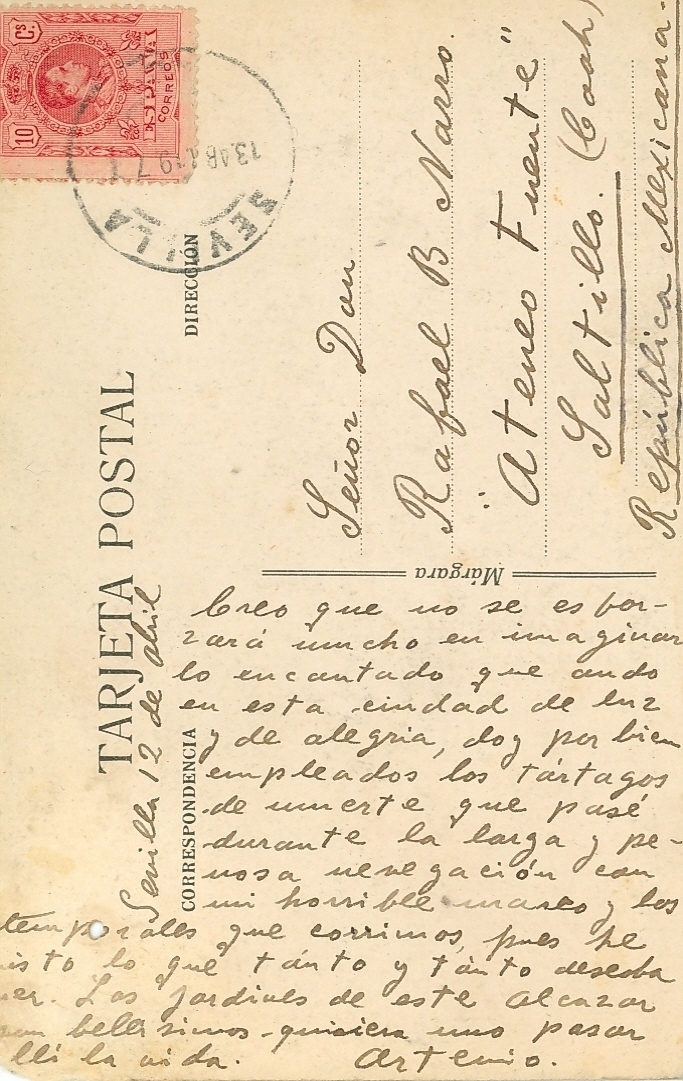 10 Cs
ESPAÑA
CORREOS
SEVILLA
TARJETA POSTAL
DIRECCIÓN
Señor Don
Rafael B Narro.
"Ateneo Fuente"
Saltillo. (Coah)
República Mexicana-
Márgara
CORRESPONDENCIA
Sevilla 12 de abril
Creo que no se esfor-
zará mucho en imaginar
lo encantado que ando
en esta ciudad de luz
y de alegria, doy por bien
empleados los tártagos
de muerte que pasé
durante la larga y pe-
nosa nevegación con
mi horrible mareo y los
temporales que corrimos, pues he
isto lo que tánto y tánto deseaba
er. Los jardines de este alcazar
son bellisimos-quisiera uno pasar
lli la vida. Artemio.